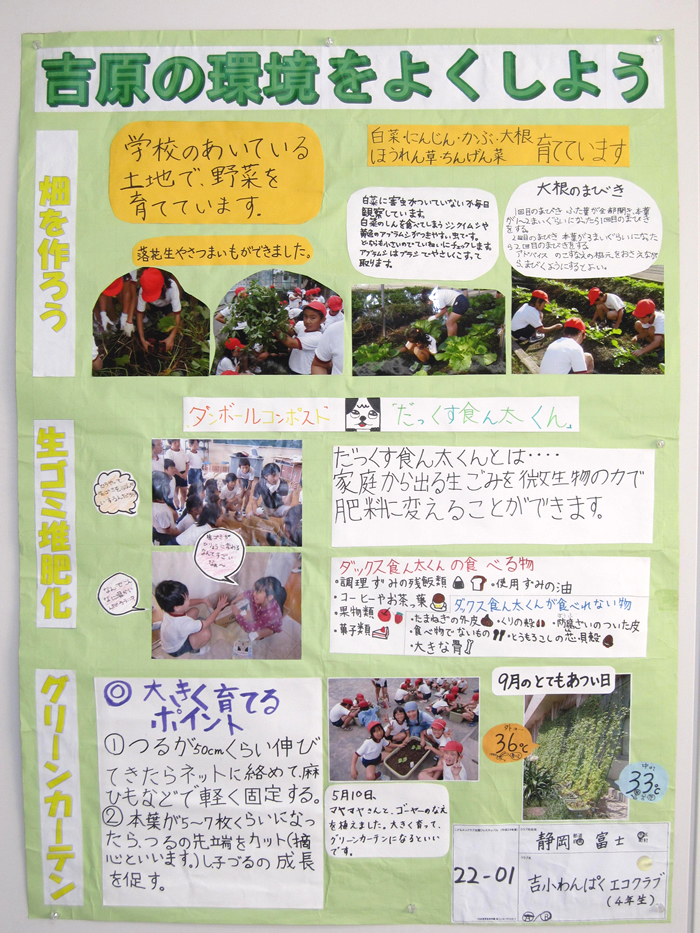 吉原の環境をよくしよう
畑を作ろう
学校のあいている
土地で、野菜を
育てています。
白菜・にんじん・かぶ・大根
ほうれん草・ちんげん菜
育てています
落花生やさつまいもができました。
白菜に害虫がついていないか毎日
観察しています。
白菜のしんを食べてしまうシンクイムシや
アブラムシがつきやすい虫です。
アブラムシはブラシでやさしくこすって
取ります。
大根のまびき
1回目のまびき ふた葉が全部開き、本葉
が1〜2まいぐらいになったら1回目のまびき
をする。
2回目のまびき 本葉が3まいぐらいになっ
たら2回目のまびきをする
生ゴミ堆肥化
ダンボールコンポスト
「だっくす食ん太くん」
だっくす食ん太くんとは・・・・
家庭から出る生ごみを微生物の力で
肥料に変えることができます。
ダックス食ん太くんの食べる物
・調理ずみの残飯類
・使用ずみの油
・コーヒーやお茶っ葉
・果物類
・菓子類
ダクス食ん太くんが食べれない物
・たまねぎの外皮
・くりの殻
・防腐ざいのついた皮
・食べ物でないもの
・とうもろこしの芯・貝殻
・大きな骨
グリーンカーテン
◎大きく育てる
ポイント
①つるが50cmくらい伸び
てきたらネットに絡めて、麻
ひもなどで軽く固定する。
②本葉が5〜7枚くらいになっ
たら、つるの先端をカット(摘
心といいます。)し子づるの成長
を促す。
5月10日、
ヤマヤマさんと、ゴーヤーのなえ
を植えました。大きく育って、
グリーンカーテンになるといい
です。
9月のとてもあつい日
外は
36℃
中は
33℃
22-01
静岡 富士
吉小わんぱくエコクラブ
(4年生)